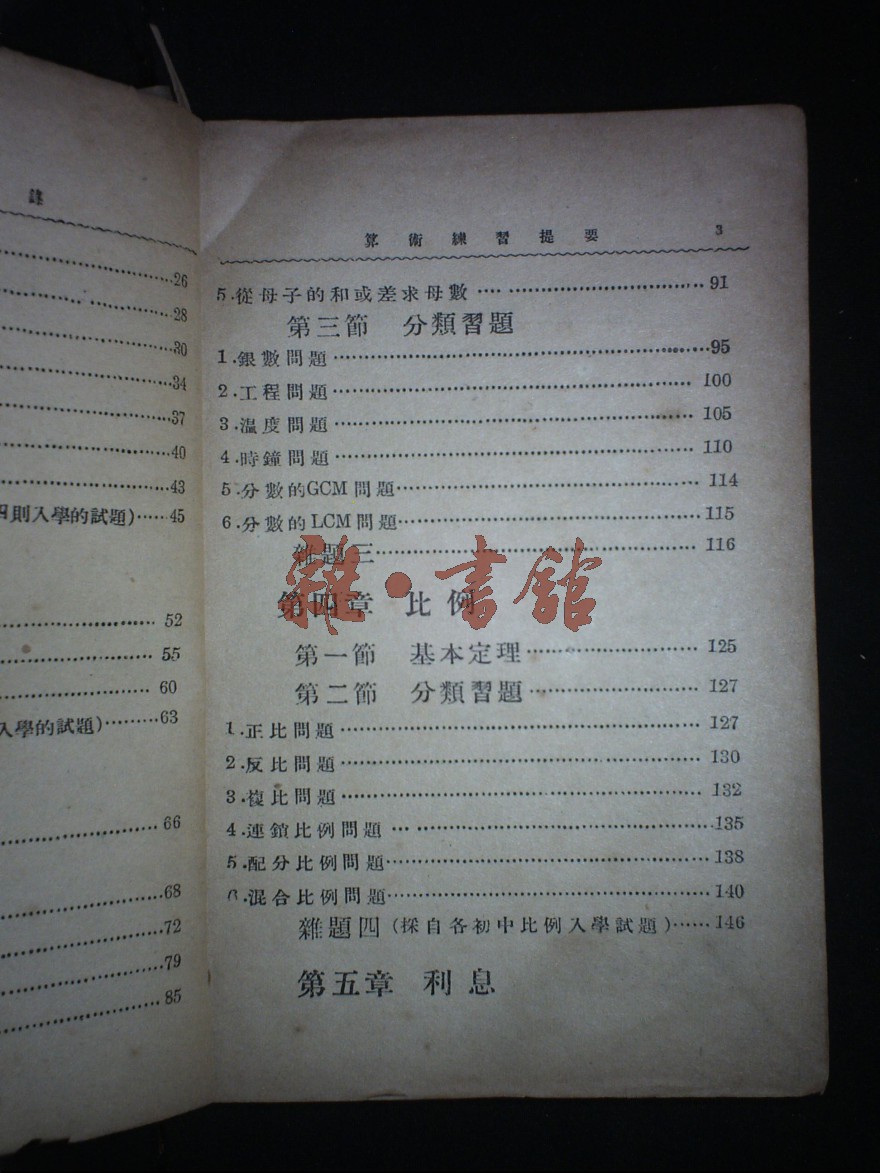 錄
26
28
30
34
37
40
43
四則入學的試題)……45
52
55
60
入學的試題)………63
66
68
72
79
85
算術練習提要 3
5.從母子的和或差求母數……91
第三節 分類習題
1.銀數問題……95
2.工程問題……100
3.溫度問題……105
4.時鐘問題……110
5.分數的GCM問題……114
6.分數的LCM問題……115
雜題三……116
雜·書館
第四章 比例
第一節 基本定理……125
第二節 分類習題……127
1.正比問題……127
2.反比問題……130
3.複比問題……132
4.連鎖比例問題……135
5.配分比例問題……138
6.混合比例問題……140
雜題四(採自各初中比例入學試題)……146
第五章 利息